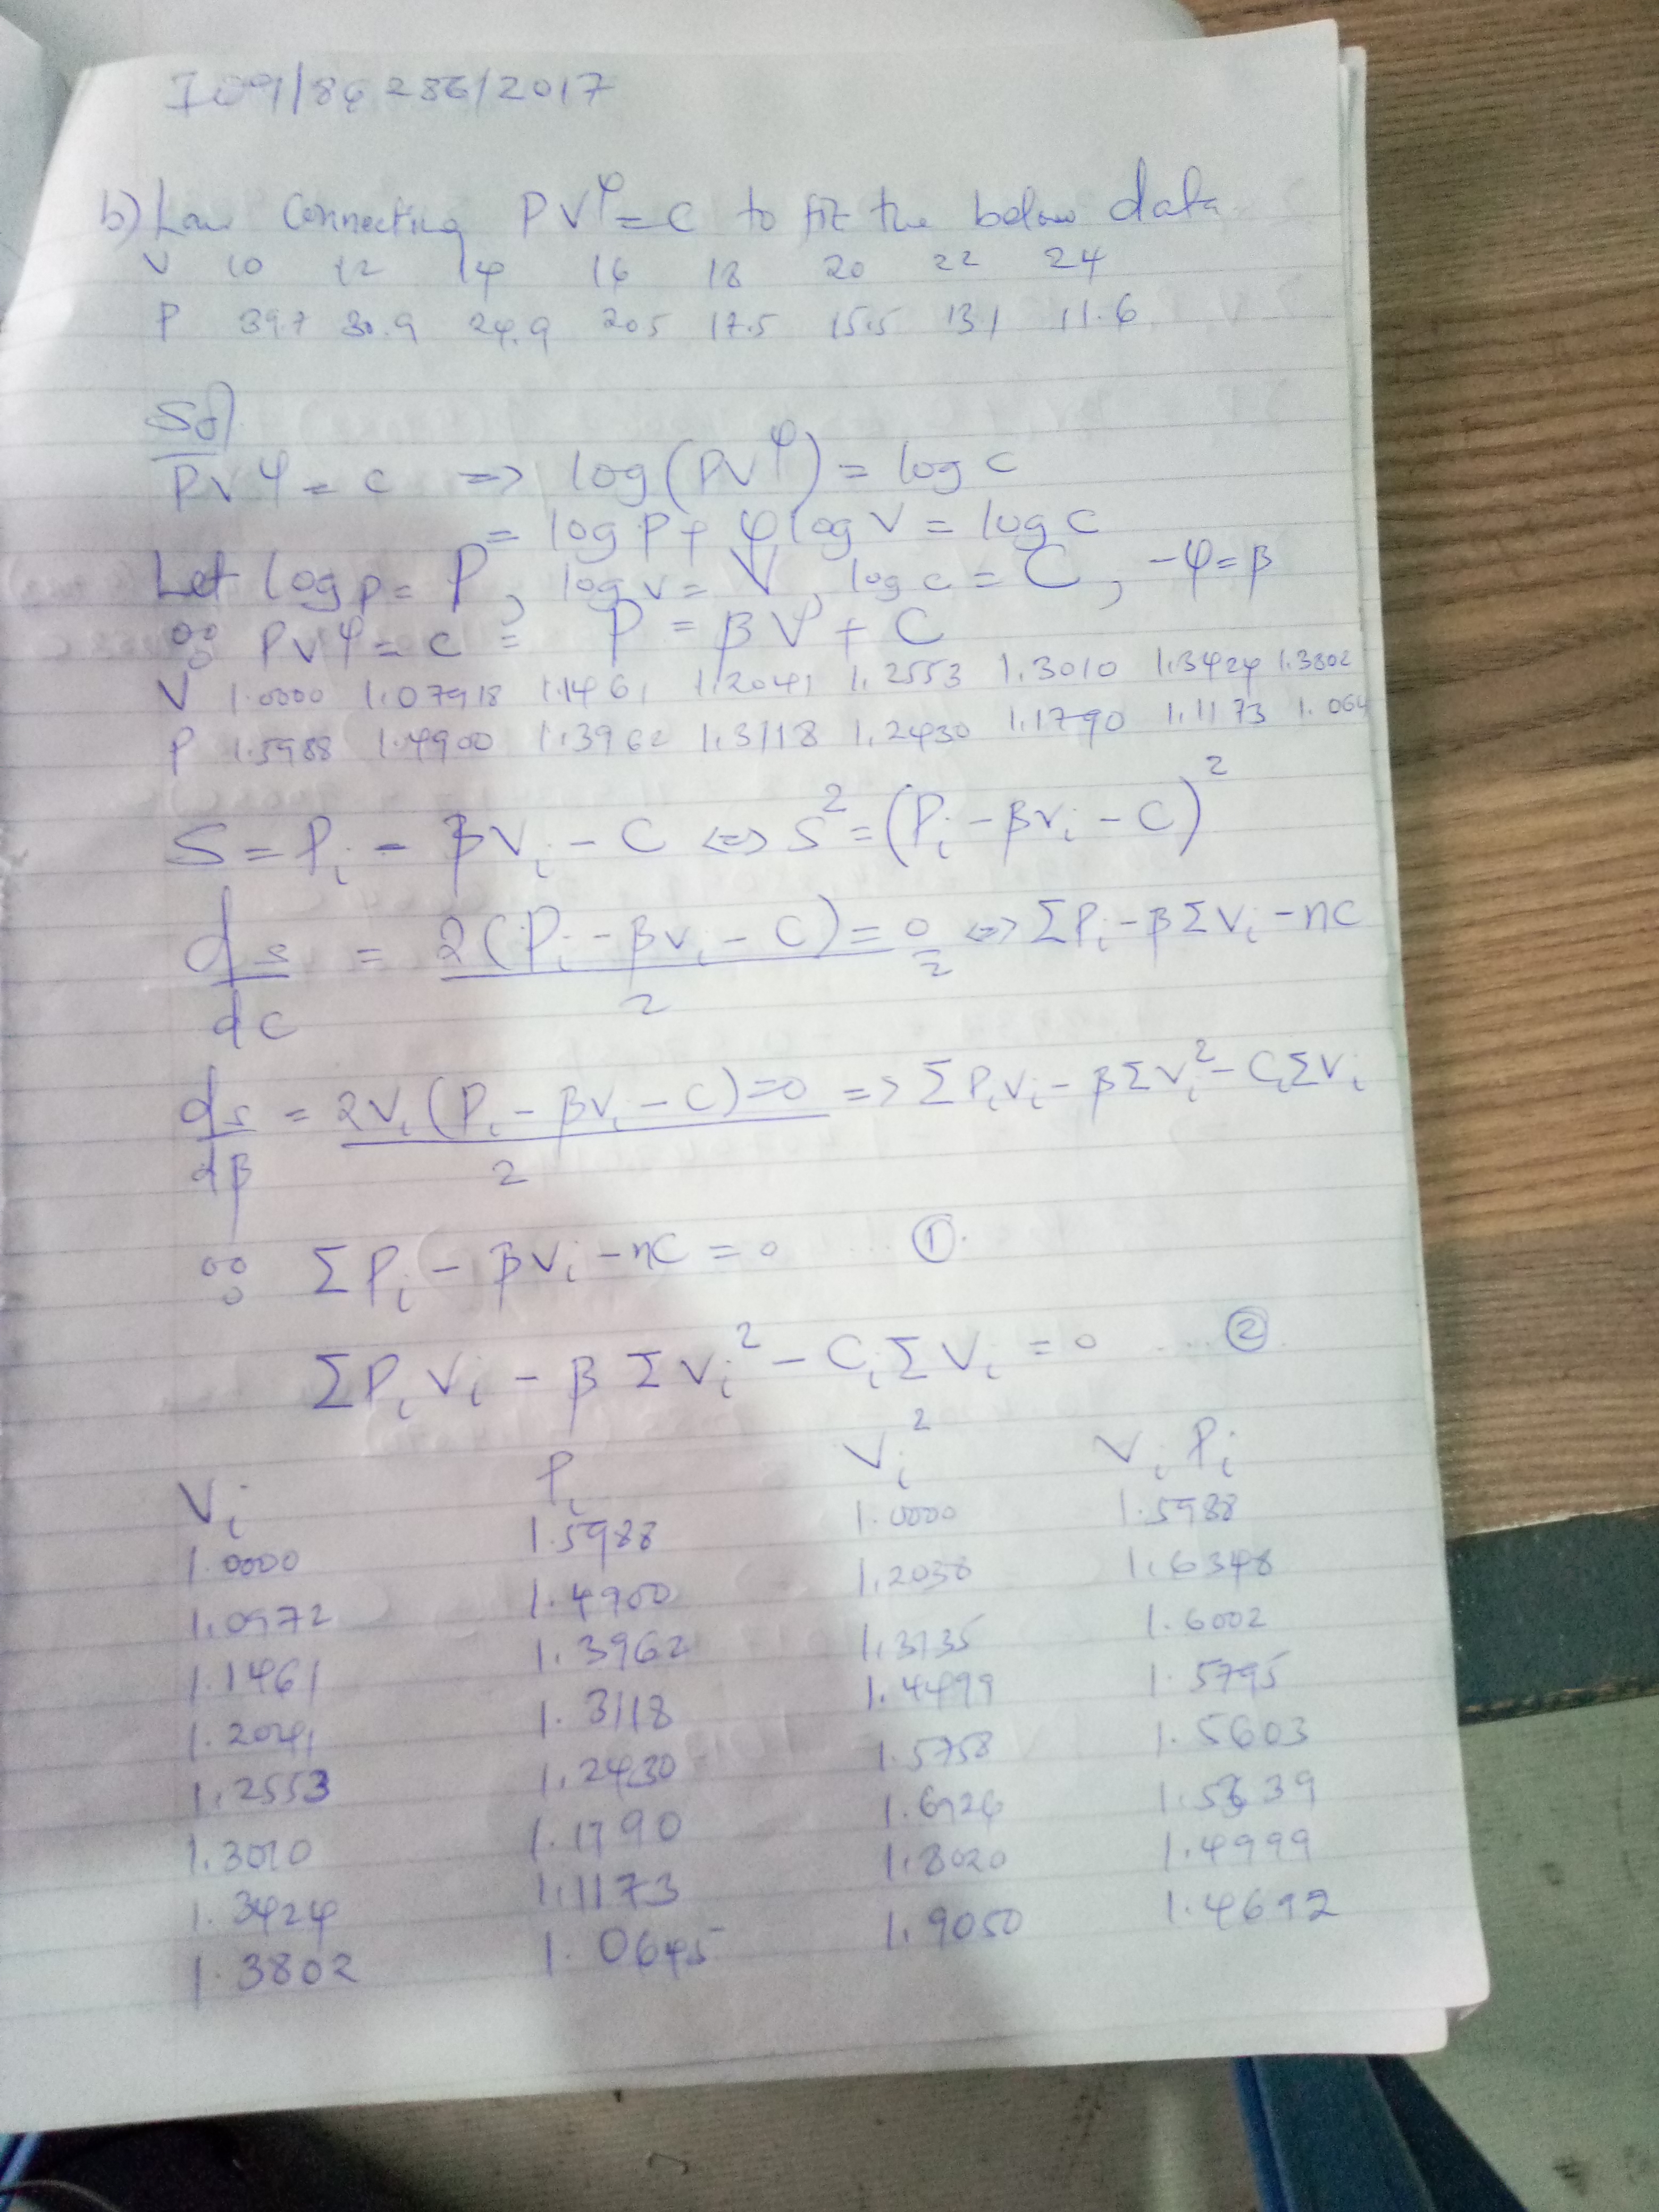 I09/86286/2017
b) Law Connecting PV^φ = C to fit the below data
V 10 12 14 16 18 20 22 24
P 39.7 30.9 24.9 20.5 17.5 15.5 13.1 11.6
Sol
PV^φ = c => log(PV^φ) = log c
= log P + φ log V = log c
Let log p = P, log v = V, log c = C, -φ = β
∴ PV^φ = c = P = βV + C
V 1.0000 1.07918 1.1461 1.2041 1.2553 1.3010 1.3424 1.3802
P 1.5988 1.4900 1.3962 1.3118 1.2430 1.1790 1.1173 1.064
S = P_i - βV_i - C <=> S² = (P_i - βv_i - C)²
ds/dc = 2(P_i - βv_i - C)/2 = 0/2 <=> ΣP_i - βΣV_i - nC
ds/dβ = 2V_i(P_i - βv_i - C) = 0/2 => ΣP_iV_i - βΣV_i² - C_iΣV_i
∴ ΣP_i - βV_i - nC = 0 ... ①
ΣP_iV_i - βΣV_i² - C_iΣV_i = 0 ... ②
V_i P_i V_i² V_iP_i
1.0000 1.5988 1.0000 1.5988
1.0972 1.4900 1.2038 1.6348
1.1461 1.3962 1.3135 1.6002
1.2041 1.3118 1.4499 1.5795
1.2553 1.2430 1.5758 1.5603
1.3010 1.1790 1.6926 1.5339
1.3424 1.1173 1.8020 1.4999
1.3802 1.0645 1.9050 1.4692